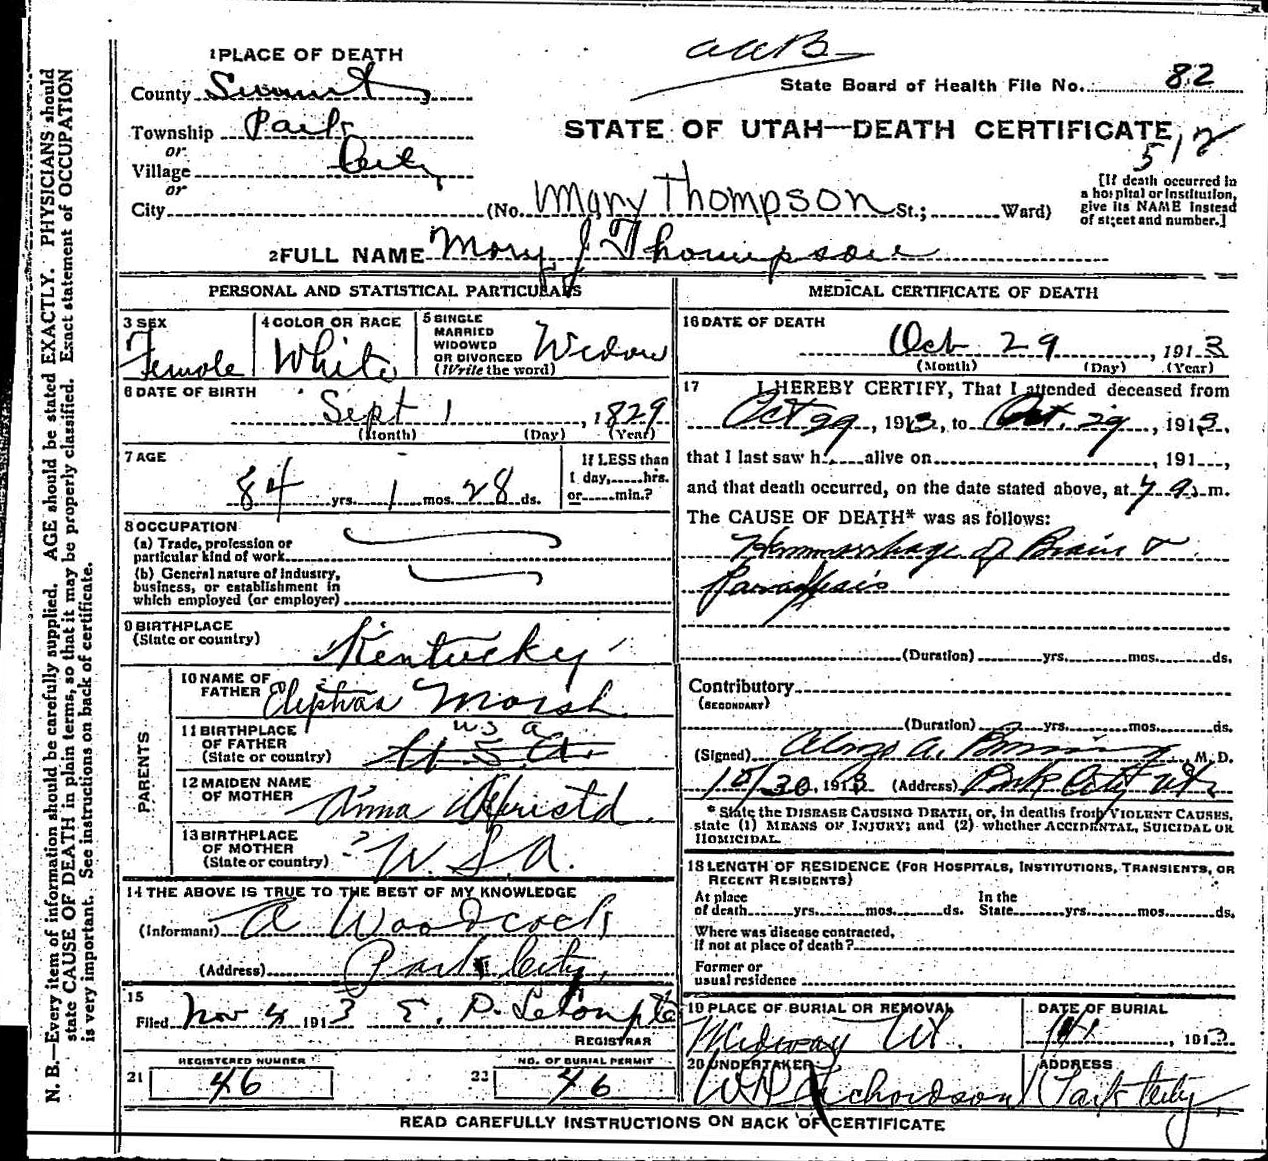 1 PLACE OF DEATH
County Summit
Township Park
or
Village City
or
City
State Board of Health File No. 82
STATE OF UTAH—DEATH CERTIFICATE
512
(No. Mary Thompson St.; Ward)
[If death occurred in
a hospital or institution,
give its NAME instead
of street and number.]
2 FULL NAME Mary J Thompson
PERSONAL AND STATISTICAL PARTICULARS
3 SEX
Female
4 COLOR OR RACE
White
5 SINGLE
MARRIED
WIDOWED
OR DIVORCED
(Write the word)
Widow
6 DATE OF BIRTH
Sept 1, 1829
(Month) (Day) (Year)
7 AGE
84 yrs. 1 mos. 28 ds.
If LESS than
1 day, hrs.
or min.?
8 OCCUPATION
(a) Trade, profession or
particular kind of work
(b) General nature of industry,
business, or establishment in
which employed (or employer)
9 BIRTHPLACE
(State or country)
Kentucky
PARENTS
10 NAME OF
FATHER
Eliphas Marsh
11 BIRTHPLACE
OF FATHER
(State or country)
U S A
U S A
12 MAIDEN NAME
OF MOTHER
Anna
13 BIRTHPLACE
OF MOTHER
(State or country)
U.S.A.
14 THE ABOVE IS TRUE TO THE BEST OF MY KNOWLEDGE
(Informant) A Woodcock
(Address) Park City,
15
Filed Nov 4 1913 E. P.
REGISTRAR
REGISTERED NUMBER
21 46
NO. OF BURIAL PERMIT
22 46
MEDICAL CERTIFICATE OF DEATH
16 DATE OF DEATH
Oct 29, 1913
(Month) (Day) (Year)
17 I HEREBY CERTIFY, That I attended deceased from
Oct 29, 1913, to Oct. 29, 1913,
that I last saw h alive on , 191 ,
and that death occurred, on the date stated above, at 7 a. m.
The CAUSE OF DEATH* was as follows:
Hemmorrhage of Brain &
(Duration) yrs. mos. ds.
Contributory
(SECONDARY)
(Duration) yrs. mos. ds.
(Signed) A. M. D.
10/30, 1913 (Address) Park City Ut
* State the DISEASE CAUSING DEATH, or, in deaths from VIOLENT CAUSES,
state (1) MEANS OF INJURY; and (2) whether ACCIDENTAL, SUICIDAL OR
HOMICIDAL.
18 LENGTH OF RESIDENCE (FOR HOSPITALS, INSTITUTIONS, TRANSIENTS, OR
RECENT RESIDENTS)
At place
of death yrs. mos. ds.
In the
State yrs. mos. ds.
Where was disease contracted,
If not at place of death?
Former or
usual residence
19 PLACE OF BURIAL OR REMOVAL
Midway Ut.
DATE OF BURIAL
, 1913
20 UNDERTAKER
W Richardson
ADDRESS
Park City
READ CAREFULLY INSTRUCTIONS ON BACK OF CERTIFICATE
N. B.—Every item of information should be carefully supplied. AGE should be stated EXACTLY. PHYSICIANS should
state CAUSE OF DEATH in plain terms, so that it may be properly classified. Exact statement of OCCUPATION
is very important. See instructions on back of certificate.